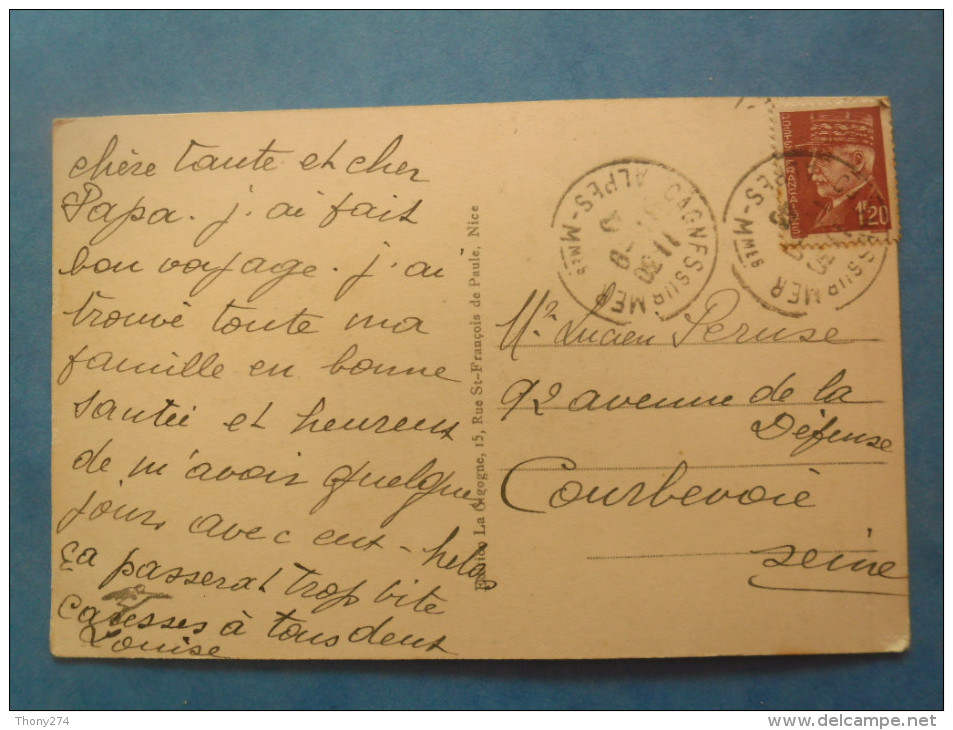 chère tante et cher
Papa. j. ai fait
bon voyage. j. ai
trouvé toute ma
famille en bonne
santée et heureux
de m'avoir quelque
jours avec eut - helas
ça passerat trop vite
Caresses à tous deux
Louise
Edition La Cigogne, 15, Rue St-François de Paule, Nice
CAGNES SUR MER
ALPES-MMES
11 30
POSTES FRANÇAISES
1F20
CAGNES SUR MER
Mr Lucien Peruse
92 avenue de la
Défense
Courbevoie
seine
Thony274
delcampe.net